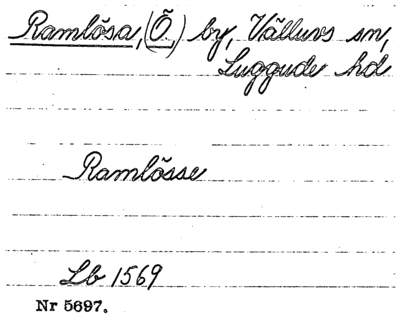 Ramlösa, (Ö.) by, Välluvs sn,
Luggude hd
Ramlösse
Lb 1569
Nr 5697.